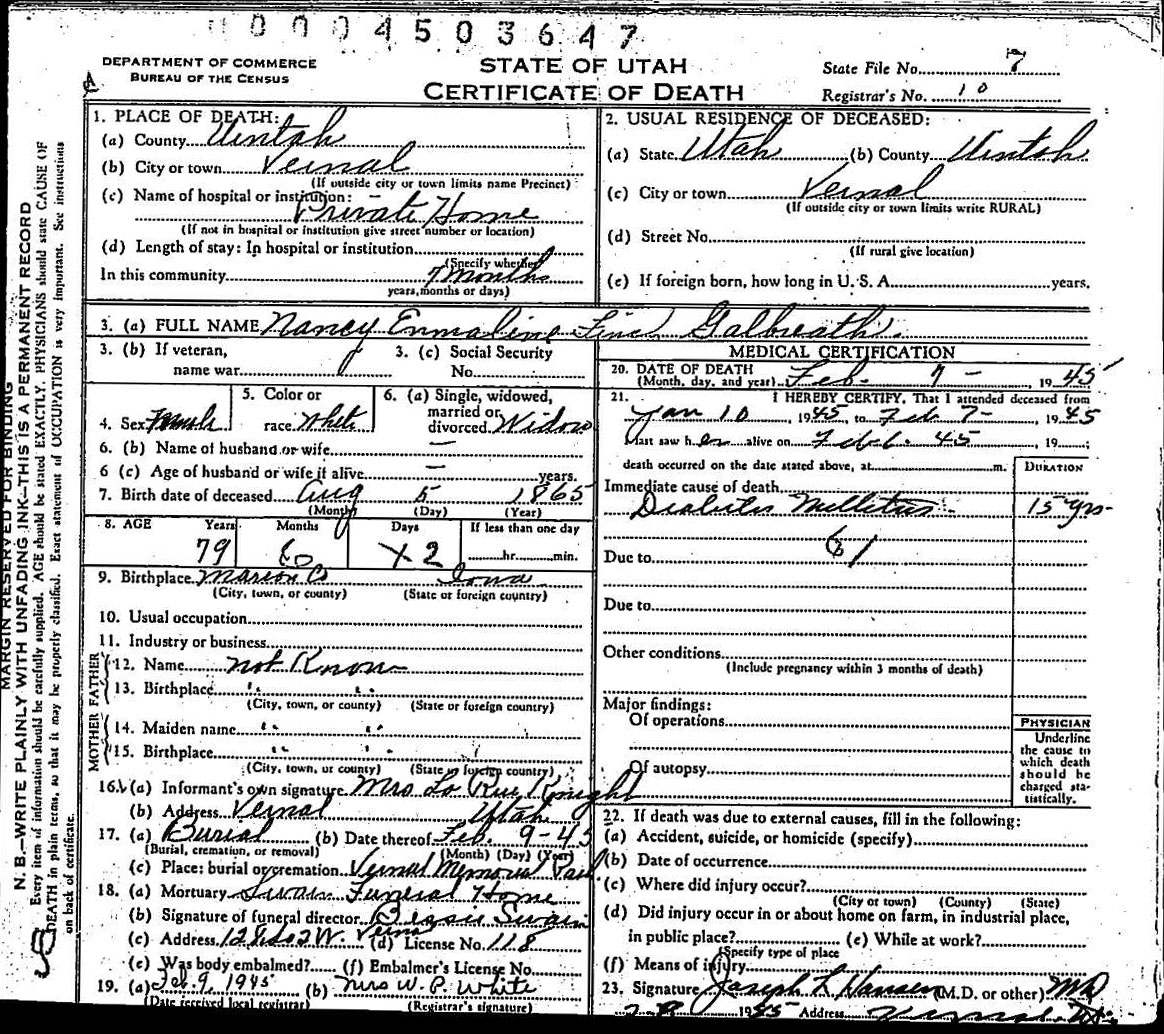 0004503647
DEPARTMENT OF COMMERCE
BUREAU OF THE CENSUS
STATE OF UTAH
CERTIFICATE OF DEATH
State File No. 7
Registrar's No. 10
MARGIN RESERVED FOR BINDING
N. B.—WRITE PLAINLY WITH UNFADING INK—THIS IS A PERMANENT RECORD
Every item of information should be carefully supplied. AGE should be stated EXACTLY. PHYSICIANS should state CAUSE OF
DEATH in plain terms, so that it may be properly classified. Exact statement of OCCUPATION is very important. See instructions
on back of certificate.
1. PLACE OF DEATH:
(a) County Uintah
(b) City or town Vernal
(If outside city or town limits name Precinct)
(c) Name of hospital or institution:
Private Home
(If not in hospital or institution give street number or location)
(d) Length of stay: In hospital or institution
(Specify whether
In this community 7 Months
years, months or days)
2. USUAL RESIDENCE OF DECEASED:
(a) State Utah (b) County Uintah
(c) City or town Vernal
(If outside city or town limits write RURAL)
(d) Street No.
(If rural give location)
(e) If foreign born, how long in U. S. A. years.
3. (a) FULL NAME Nancy Emmaline Finch Galbreath
3. (b) If veteran,
name war
3. (c) Social Security
No.
4. Sex Female
5. Color or
race White
6. (a) Single, widowed,
married or
divorced Widow
6. (b) Name of husband or wife —
6 (c) Age of husband or wife if alive — years.
7. Birth date of deceased Aug 5 1865
(Month) (Day) (Year)
8. AGE Years Months Days If less than one day
79 6 2 hr. min.
9. Birthplace Marion Co Iowa
(City, town, or county) (State or foreign country)
10. Usual occupation
11. Industry or business
FATHER
12. Name not Known
13. Birthplace " "
(City, town, or county) (State or foreign country)
MOTHER
14. Maiden name " "
15. Birthplace " "
(City, town, or county) (State or foreign country)
16. (a) Informant's own signature Mrs La Rue Knight
(b) Address Vernal Utah
17. (a) Burial (b) Date thereof Feb. 9-45
(Burial, cremation, or removal) (Month) (Day) (Year)
(c) Place: burial or cremation Vernal Memorial Park
18. (a) Mortuary Swain Funeral Home
(b) Signature of funeral director Bessie Swain
(c) Address Vernal (d) License No. 118
(e) Was body embalmed? (f) Embalmer's License No.
19. (a) Feb. 9 1945 (b) Mrs W. P. White
(Date received local registrar) (Registrar's signature)
MEDICAL CERTIFICATION
20. DATE OF DEATH
(Month, day, and year) Feb. 7 - , 1945
21. I HEREBY CERTIFY, That I attended deceased from
Jan 10 1945, to Feb 7- , 1945
last saw her alive on Feb 6. 45 , 19 ;
death occurred on the date stated above, at m.
DURATION
Immediate cause of death
Diabetes Mellitus 15 yrs-
61
Due to
Due to
Other conditions
(Include pregnancy within 3 months of death)
Major findings:
Of operations
Of autopsy
PHYSICIAN
Underline
the cause to
which death
should be
charged sta-
tistically.
22. If death was due to external causes, fill in the following:
(a) Accident, suicide, or homicide (specify)
(b) Date of occurrence
(c) Where did injury occur?
(City or town) (County) (State)
(d) Did injury occur in or about home on farm, in industrial place,
in public place? (e) While at work?
(Specify type of place
(f) Means of injury
23. Signature Joseph L Hansen (M.D. or other) MD
Address Vernal Ut.